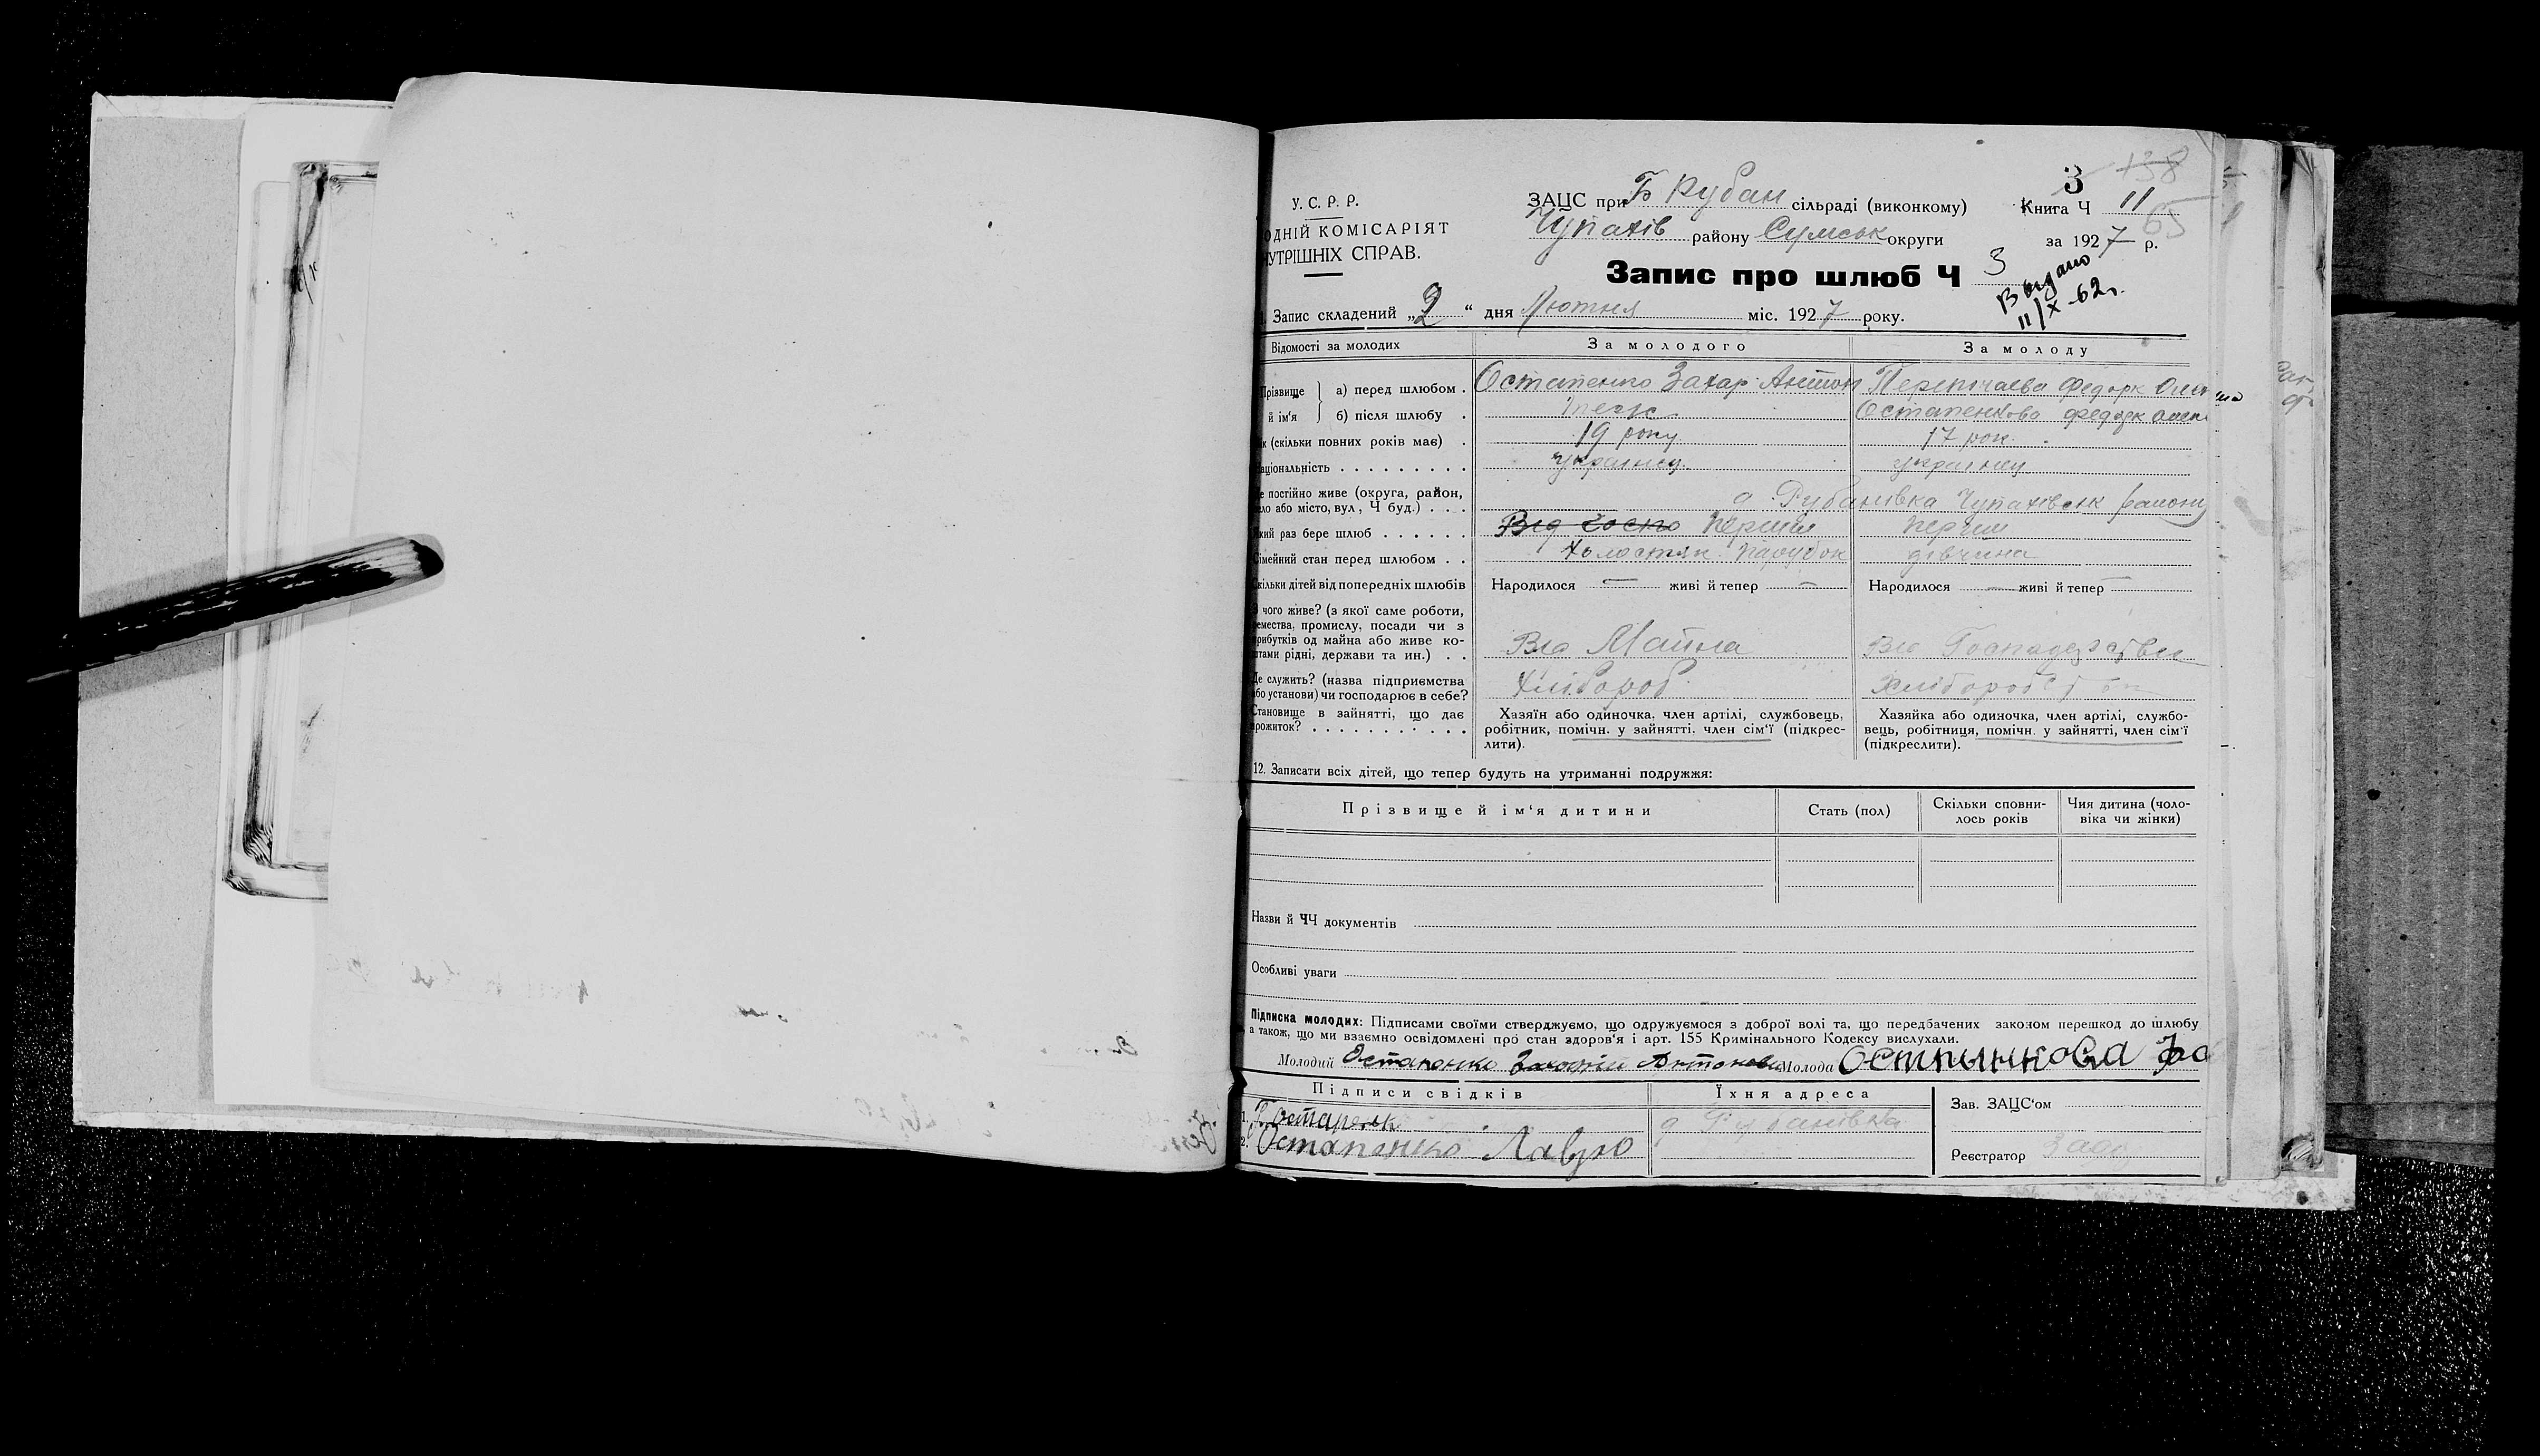 3 138
У. С. Р. Р. ЗАЦС при Б Рубан сільраді (виконкому) Книга Ч 11
65
ОДНІЙ КОМІСАРІЯТ Чупахів району Сумськ округи за 1927 р.
УТРІШНІХ СПРАВ.
Запис про шлюб Ч 3
Видано
11/X-62г.
Запис складений „2“ дня Лютня міс. 1927 року.
Відомості за молодих За молодого За молоду
Прізвище а) перед шлюбом . Остапенко Захар Антон Перепічаєва Федорк
й ім'я б) після шлюбу . Остапенкова Федорк
к (скільки повних років має) . 19 року 17 рок.
аціональність . . . . . . . . . українец українец
е постійно живе (округа, район,
ло або місто, вул, Ч буд.) . . . Рубанівка Чупахівськ району
кий раз бере шлюб . . . . . . Від Госпо перший перший
імейний стан перед шлюбом . . Холостяк парубок дівчина
кільки дітей від попередніх шлюбів Народилося — живі й тепер — Народилося — живі й тепер —
чого живе? (з якої саме роботи,
емества, промислу, посади чи з
рибутків од майна або живе ко-
штами рідні, держави та ин.) . . Від Майна Від
Де служить? (назва підприємства
бо установи) чи господарює в себе? Хлібороб
Становище в зайнятті, що дає Хазяїн або одиночка, член артілі, службовець, Хазяйка або одиночка, член артілі, службо-
прожиток? . . . . . . . . . . . робітник, помічн. у зайнятті, член сім'ї (підкрес- вець, робітниця, помічн. у зайнятті, член сім'ї
лити). (підкреслити).
12. Записати всіх дітей, що тепер будуть на утриманні подружжя:
Прізвище й ім'я дитини Стать (пол) Скільки сповни- Чия дитина (чоло-
лось років віка чи жінки)
Назви й ЧЧ документів
Особливі уваги
Підписка молодих: Підписами своїми стверджуємо, що одружуємося з доброї волі та, що передбачених законом перешкод до шлюбу
а також, що ми взаємно освідомлені про стан здоров'я і арт. 155 Кримінального Кодексу вислухали.
Молодий Остапенко Молода
Підписи свідків Їхня адреса Зав. ЗАЦС'ом
1. Рубанівка
2. Остапенко Лавро Реєстратор